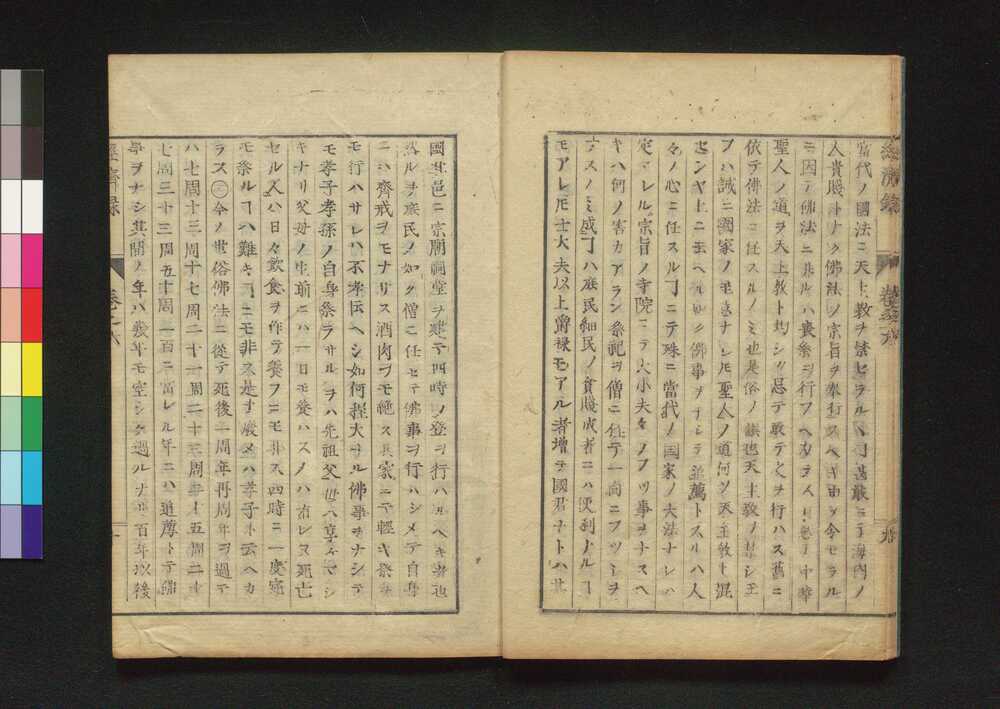 當代ノ國法ニ天主教ヲ禁セラルヽ甚嚴ニテ海内ノ
人貴賤トナク佛法ノ宗旨ヲ奉行スヘキ由ヲ令セラル
ニ因テ佛法ニ
聖人ノ道ヲ天主教ト均シク忌テ敢テ之ヲ行ハス舊ニ
依テ佛法ニ任スルノミ也是俗ノ誤也天主教ノ禁シ玉
フハ誠ニ國家ノ ナレ𪜈聖人ノ道何ソ天主教ト混
センヤ上ニ云ヘル如ク佛事ヲナシテ追薦トスルハ人
々ノ心ニ任スルヿニテ殊ニ當代ノ國家ノ大法ナレハ
定マレル宗旨ノ寺院ニテ大小夫々ノフツ事ヲナスヘ
キハ何ノ害カアラン祭祀ヲ僧ニ任テ一向ニフツシヲ
ナスノミ成ヿハ庶民細民ノ貧賤成者ニハ便利ナルヿ
モアレ𪜈士大夫以上爵禄モアル者増テ國君ナトハ其
國其邑ニ宗廟祠堂ヲ建テ四時ノ祭ヲ行ハルヘキ者也
然ルヲ庶民ノ如ク僧ニ任セテ佛事ヲ行ハシメテ自身
ニハ齊戒ヲモナサス酒肉ヲモ絶ス其家ニテ輕キ祭ヲ
モ行ハサレハ不孝
モ孝子孝孫ノ自身祭ラサルヲハ先祖父母ハ享玉マシ
キナリ父母ノ生前ニハ一日モ養ハスノハ有レ又死亡
セル人ハ日々飲食ヲ作テ養フニモ非ス四時ニ一度宛
モ祭ルヿハ難キヿニモ非ス是サヘ廢メハ孝子ト云ヘカ
ラス○今ノ世俗佛法ニ從テ死後一周年再周年ヲ過テ
ハ七周十三周十七周二十一周二十三周二十五周二十
七周三十三周五十周一百ニ當レル年ニハ追薦トテ佛
事ヲナシ其間ノ年ハ幾年モ空シク過ルナリ百年以後
經濟録
卷之六
九